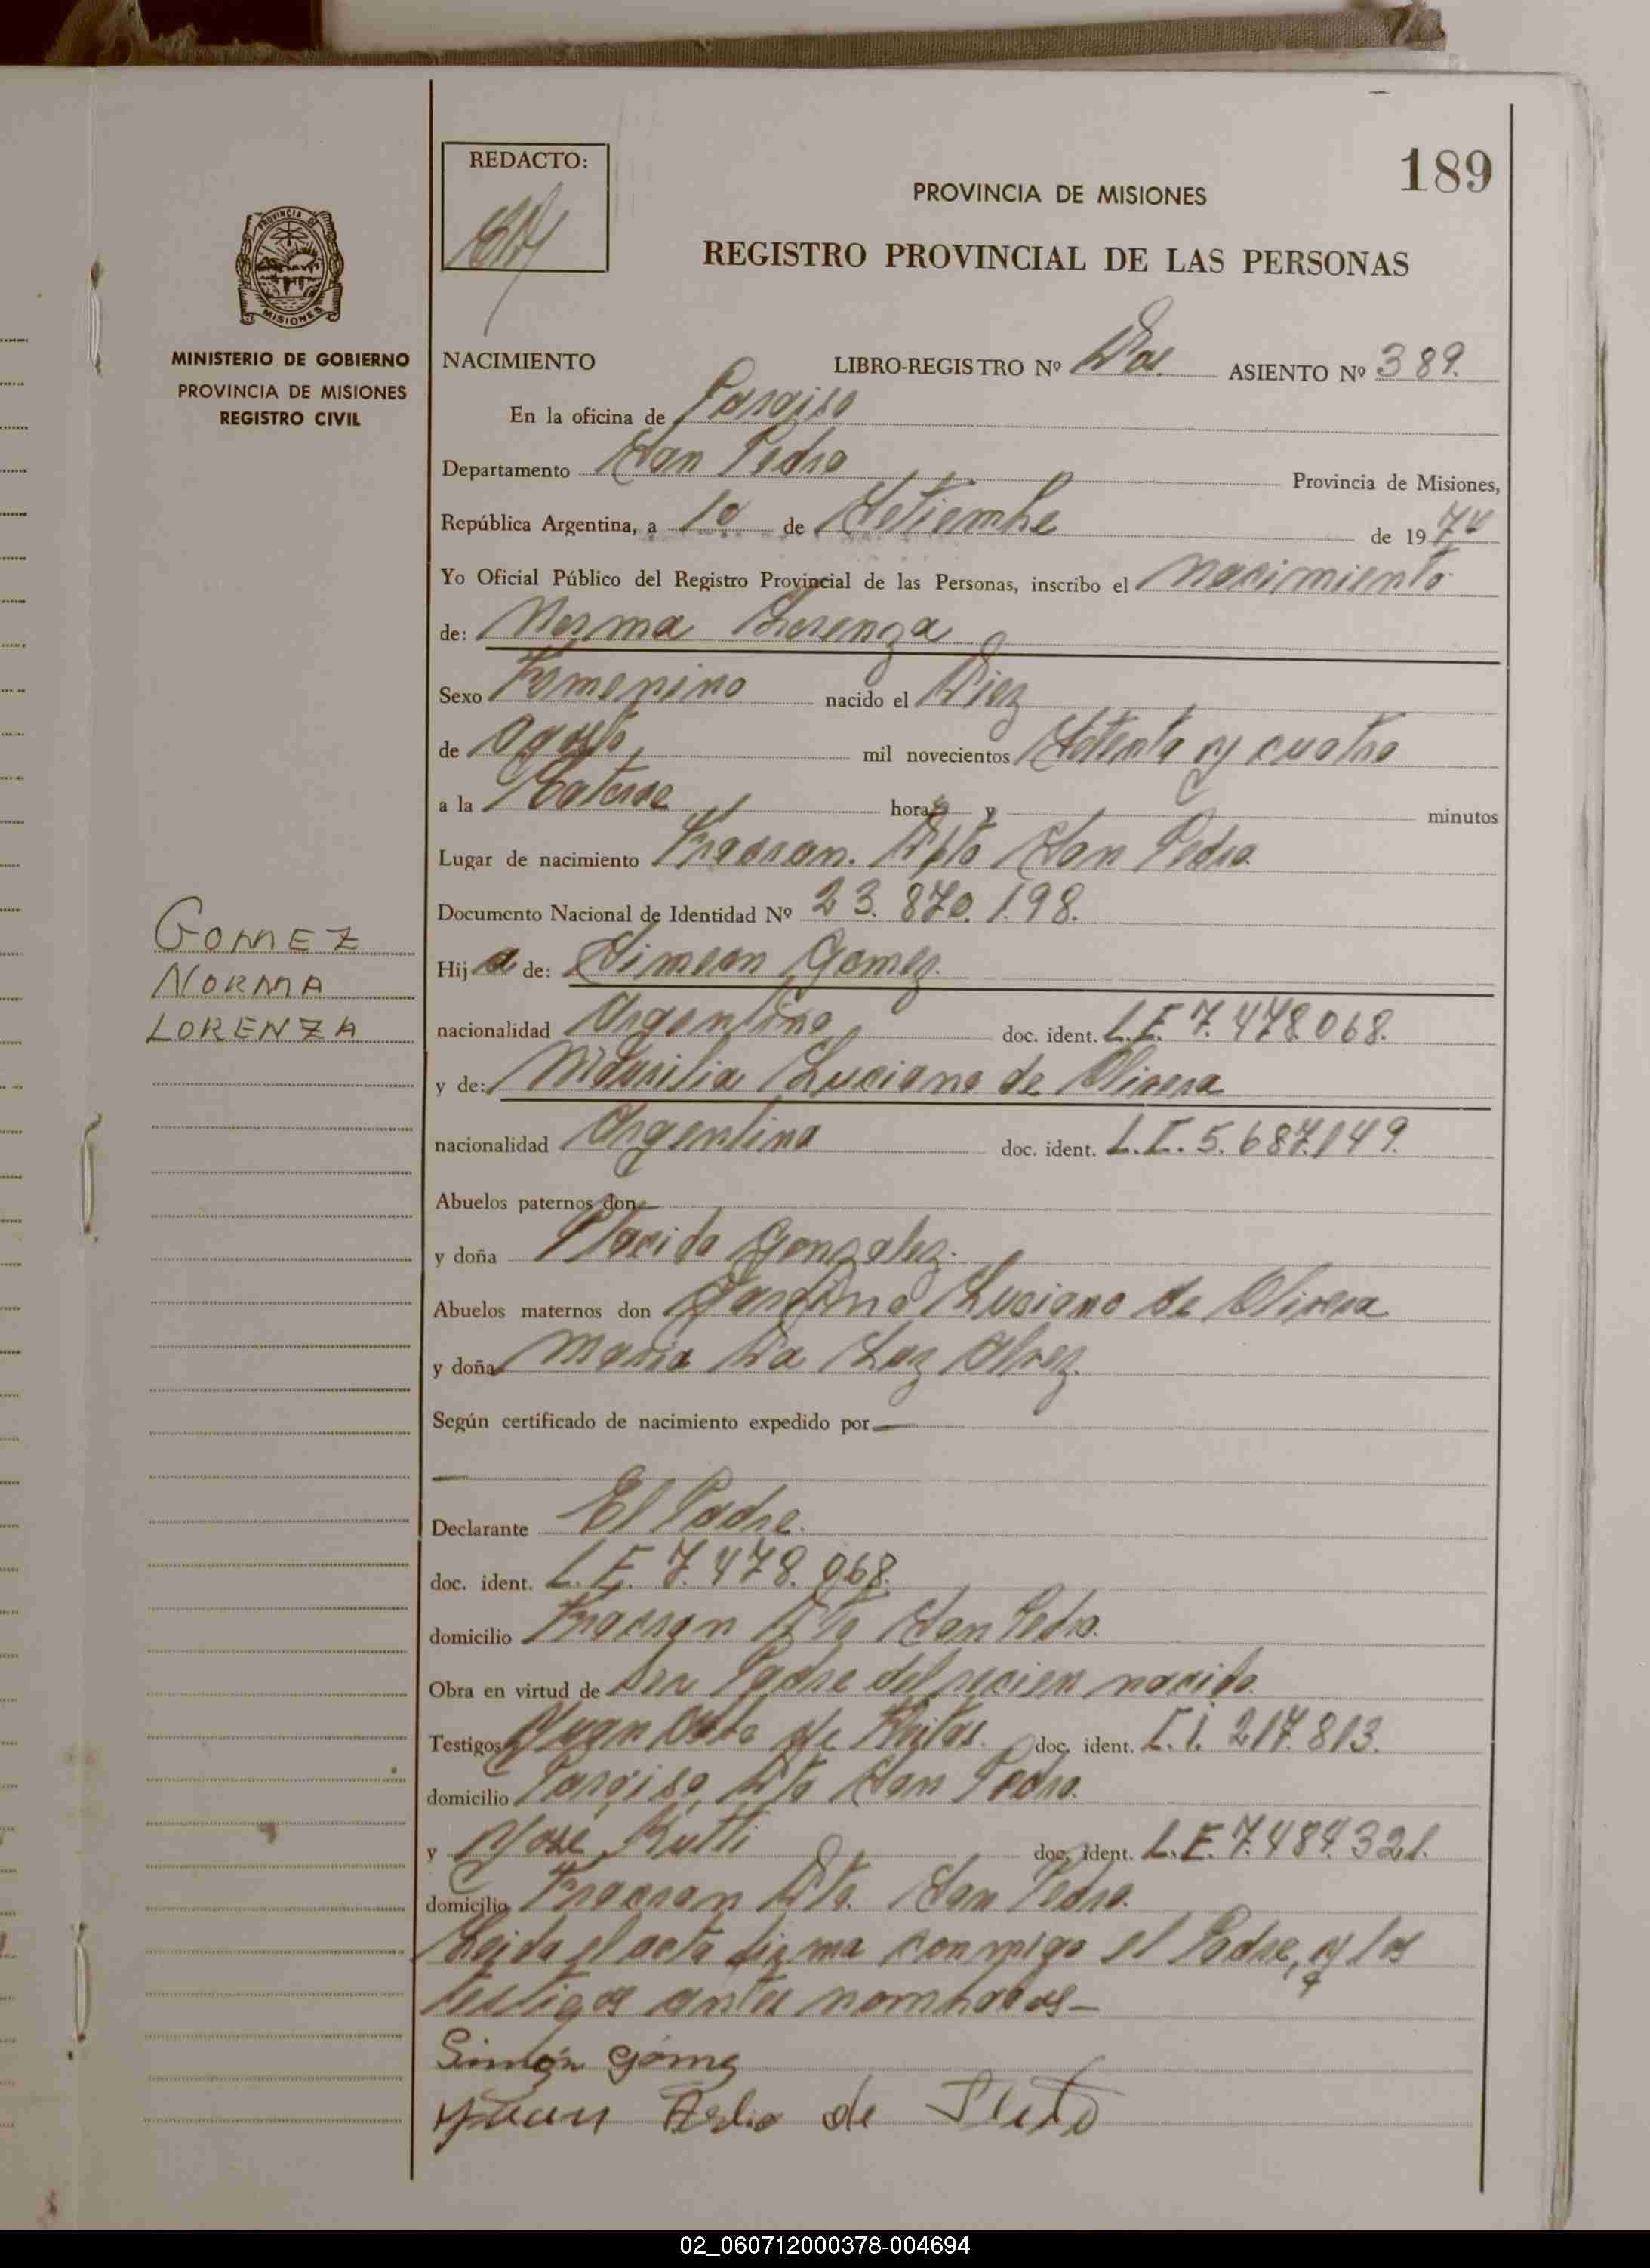 189
REDACTO:
PROVINCIA DE MISIONES
REGISTRO PROVINCIAL DE LAS PERSONAS
PROVINCIA DE
MISIONES
MINISTERIO DE GOBIERNO
PROVINCIA DE MISIONES
REGISTRO CIVIL
NACIMIENTO LIBRO-REGISTRO Nº Dos. ASIENTO Nº 389.
En la oficina de Paraiso
Departamento San Pedro Provincia de Misiones,
República Argentina, a 10 de Setiembre de 1974
Yo Oficial Público del Registro Provincial de las Personas, inscribo el nacimiento
de: Norma Lorenza
Sexo Femenino nacido el Diez
de Agosto, mil novecientos Setenta y cuatro
a la Catorse horas y minutos
Lugar de nacimiento Fracran. Dpto San Pedro
Documento Nacional de Identidad Nº 23.870.198.
GOMEZ
NORMA
LORENZA
Hija de: Simeon Gomez.
nacionalidad Argentino, doc. ident. L.E. 7.478.068.
y de: Luciano de Olivera
nacionalidad Argentina doc. ident. L.C. 5.687.149.
Abuelos paternos don
y doña Placida Gonzalez.
Abuelos maternos don Luciano de Olivera
y doña Maria Da Luz Alvez.
Según certificado de nacimiento expedido por
Declarante El Padre.
doc. ident. L.E. 7.478.068.
domicilio Fracran Dto San Pedro.
Obra en virtud de Ser Padre del recien nacido.
Testigos Juan de doc. ident. C.I. 217.813.
domicilio Paraiso, Dto San Pedro.
y José Kutti doc. ident. L.E. 7.484.321.
domicilio Fracran Dto. San Pedro.
Leida el acta firma conmigo el Padre, y los
testigos antes nombrados-
Simeón Gómez
Juan de
02_060712000378-004694